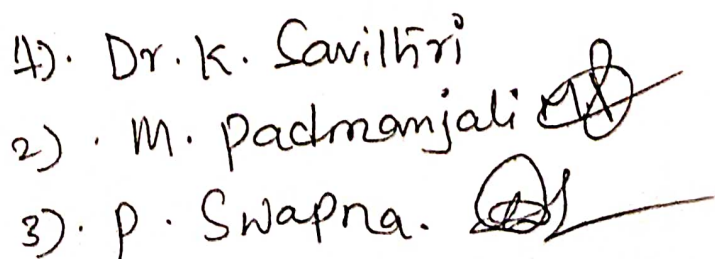 1). Dr. K. Savithri
2). M. Padmanjali
3). P. Swapna.